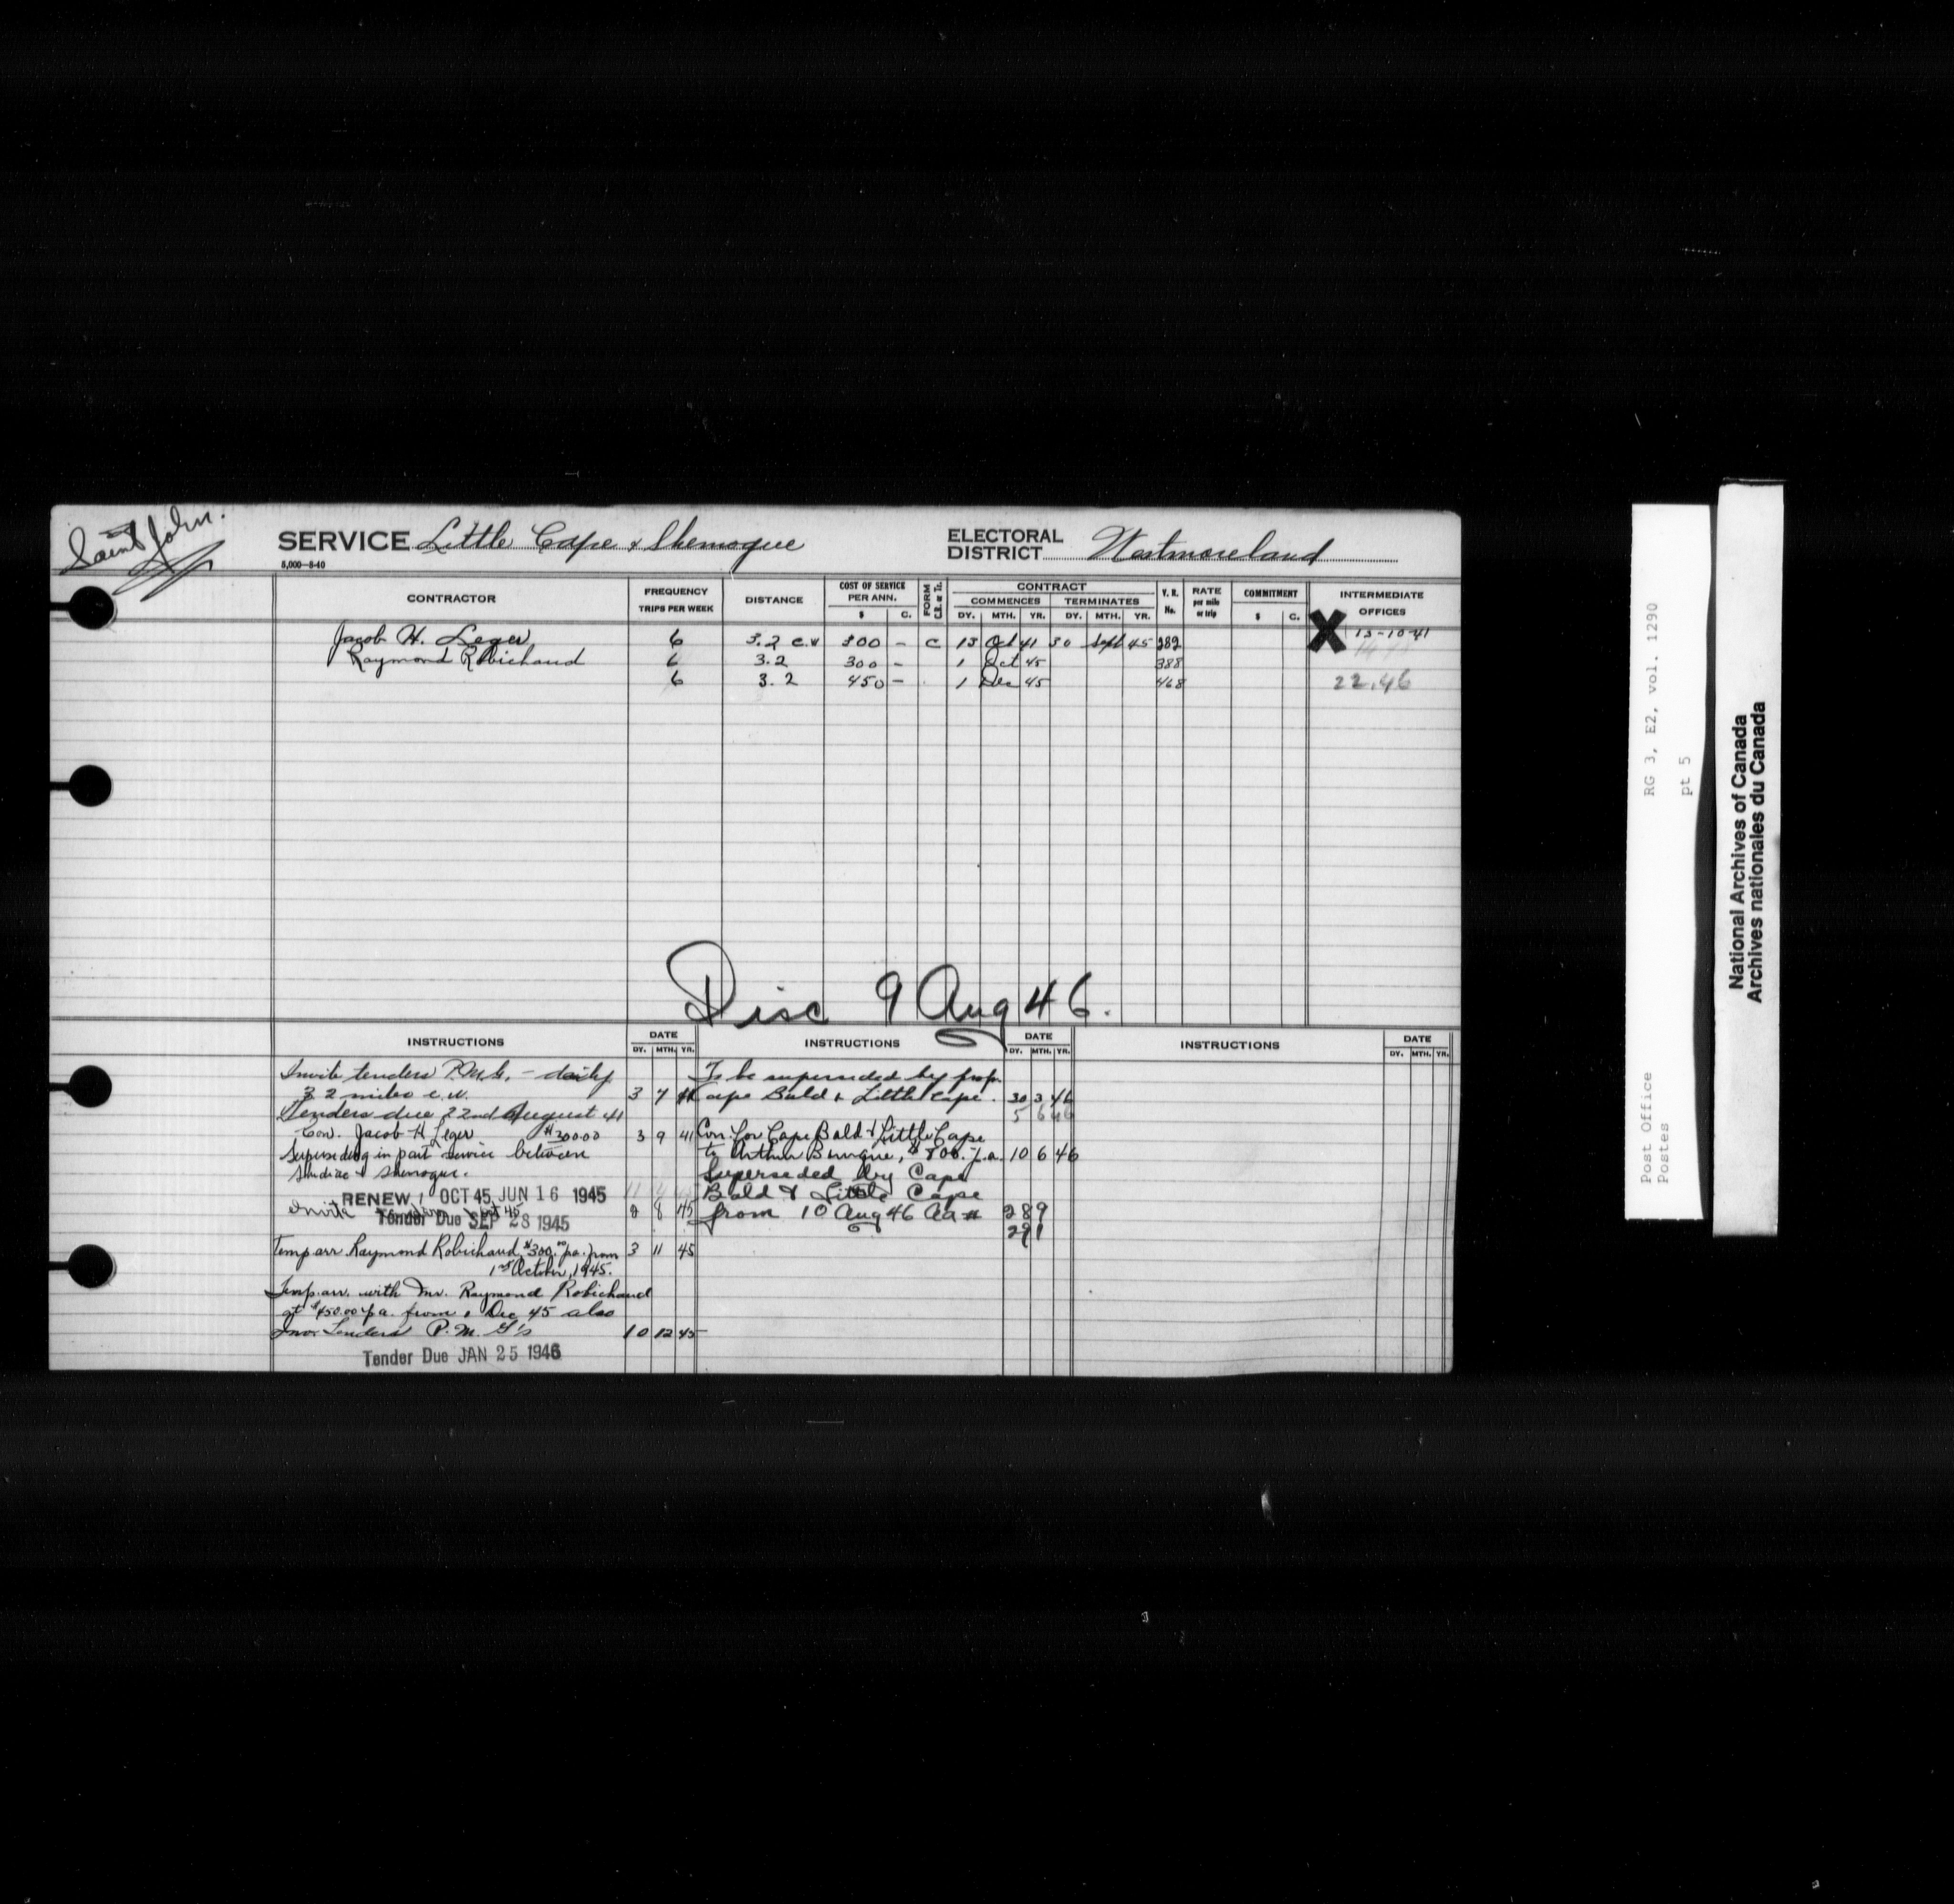 Saint John.
SERVICE Little Cape & Shemogue
ELECTORAL DISTRICT Westmoreland
5,000-8-40
CONTRACTOR FREQUENCY TRIPS PER WEEK DISTANCE COST OF SERVICE PER ANN. $ C. FORM C.B. or Tr. CONTRACT COMMENCES DY. MTH. YR. TERMINATES DY. MTH. YR. V.R. No. RATE per mile or trip COMMITMENT $ C. INTERMEDIATE OFFICES
Jacob H. Leger 6 3.2 c.w 300 - C 13 Oct 41 30 Sept 45 X 13-10-41
Raymond Robichaud 6 3.2 300 - 1 Oct 45 388
6 3.2 450 - 1 Dec 45 468 22.46
Disc 9 Aug 46.
INSTRUCTIONS DATE DY. MTH. YR.
Invite tenders P.M.G. - daily
3 2 miles c.w. 3 7 41
Tenders due 22nd August 41
Con. Jacob H Leger $300.00 3 9 41
Superseding in part service between
Shediac & Shemogue.
RENEW 1 OCT 45 JUN 16 1945
Invite 8 45
Tender Due SEP 28 1945
Temp arr Raymond Robichaud $300.00 pa. from 3 11 45
1st October, 1945.
Temp. arr. with Mr. Raymond Robichaud
at $450.00 p.a. from 1 Dec 45 also
Inv. Tenders P.M.G's 10 12 45
Tender Due JAN 25 1946
INSTRUCTIONS DATE DY. MTH. YR.
To be superseded by prop.
Cape Bald & Little Cape. 30 3 46
5 6 46
Con. for Cape Bald & Little Cape
to Arthur $800. p.a. 10 6 46
Superseded by Cape
Bald & Little Cape
from 10 Aug 46 Aa # 289
291
INSTRUCTIONS DATE DY. MTH. YR.
RG 3, E2, vol. 1290
pt 5
Post Office
Postes
National Archives of Canada
Archives nationales du Canada